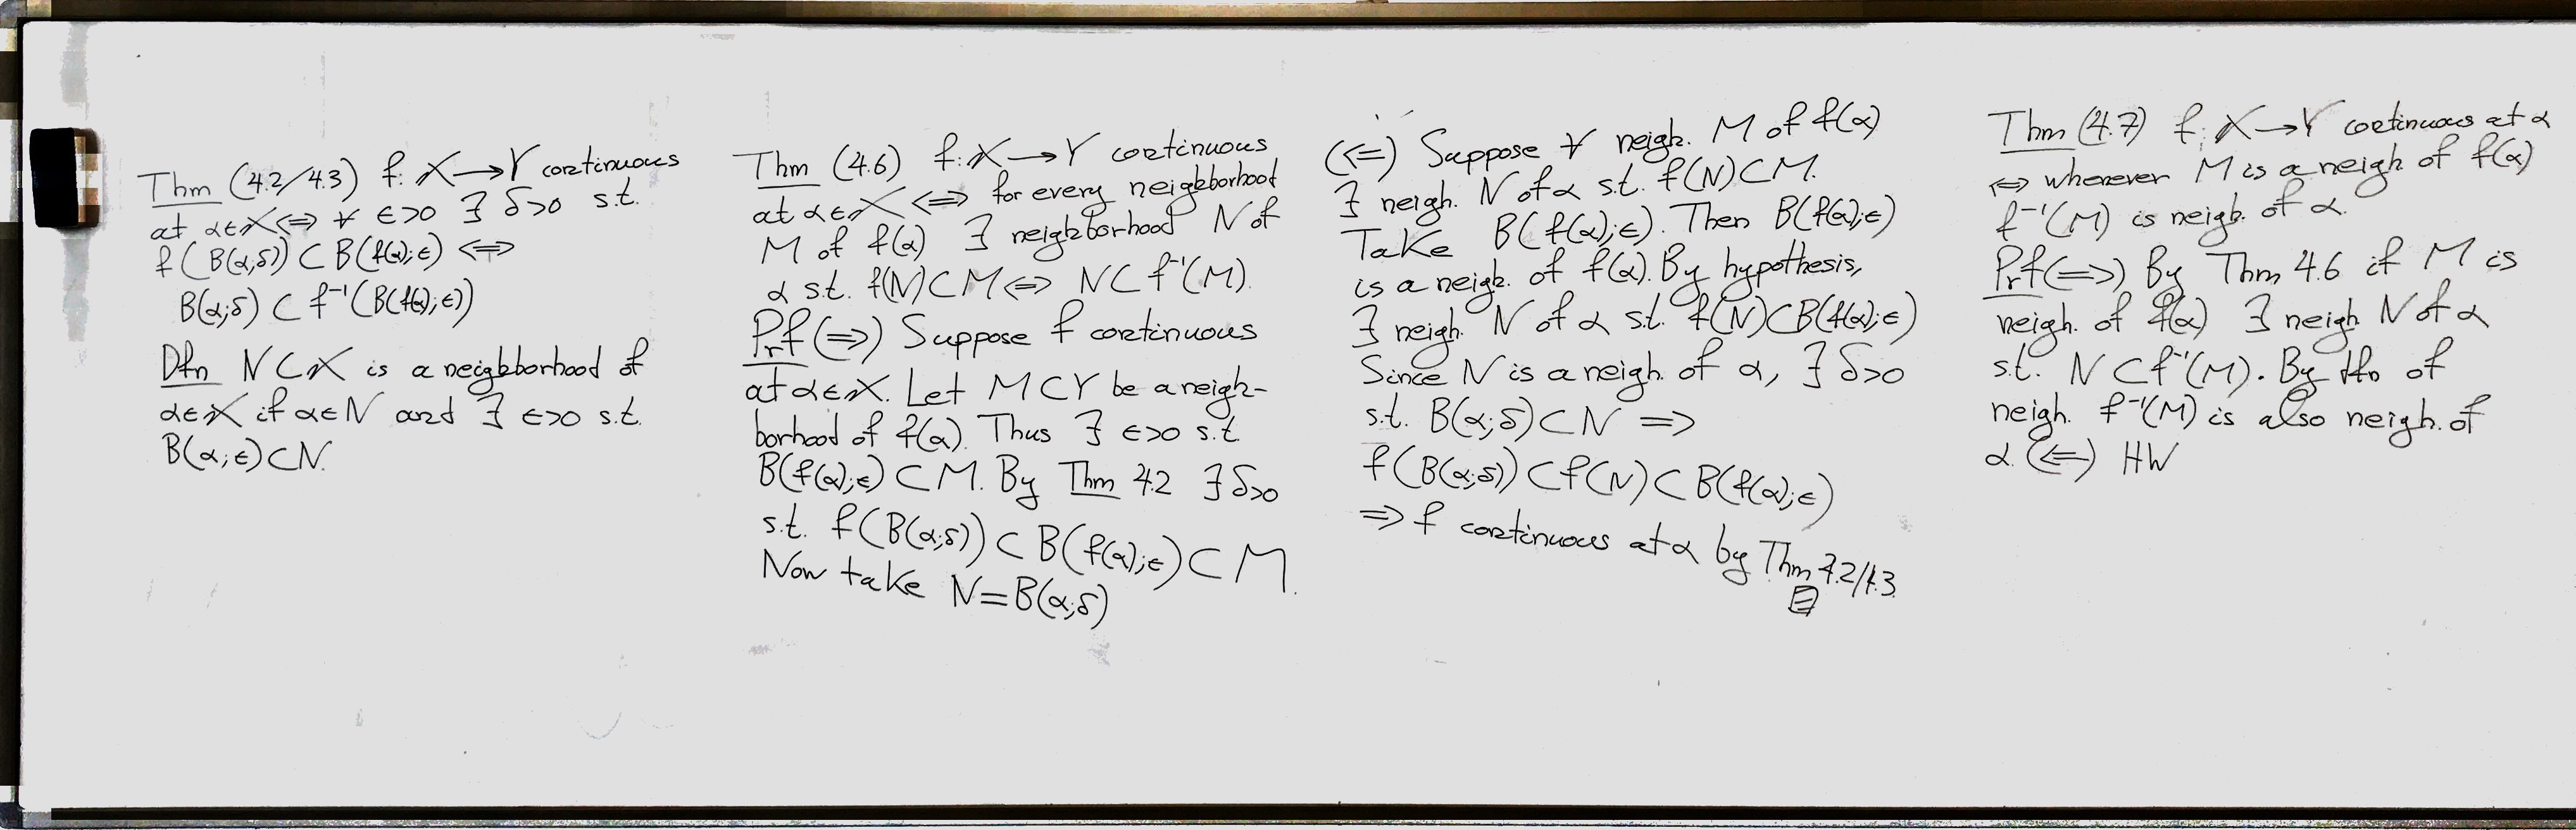 Thm (4.2/4.3) f: X→Y continuous
at α∈X ⟺ ∀ ϵ>0 ∃ δ>0 s.t.
f(B(α;δ)) ⊂ B(f(α);ϵ) ⟺
B(α;δ) ⊂ f⁻¹(B(f(α);ϵ))
Dfn N⊂X is a neighborhood of
α∈X if α∈N and ∃ ϵ>0 s.t.
B(α;ϵ)⊂N.
Thm (4.6) f: X→Y continuous
at α∈X ⟺ for every neighborhood
M of f(α) ∃ neighborhood N of
α s.t. f(N)⊂M ⟺ N⊂f⁻¹(M).
Prf (⟹) Suppose f continuous
at α∈X. Let M⊂Y be a neigh-
borhood of f(α). Thus ∃ ϵ>0 s.t.
B(f(α);ϵ)⊂M. By Thm 4.2 ∃ δ>0
s.t. f(B(α;δ))⊂B(f(α);ϵ)⊂M.
Now take N=B(α;δ)
(⟸) Suppose ∀ neigh. M of f(α)
∃ neigh. N of α s.t. f(N)⊂M.
Take B(f(α);ϵ). Then B(f(α);ϵ)
is a neigh. of f(α). By hypothesis,
∃ neigh. N of α s.t. f(N)⊂B(f(α);ϵ)
Since N is a neigh. of α, ∃ δ>0
s.t. B(α;δ)⊂N ⟹
f(B(α;δ))⊂f(N)⊂B(f(α);ϵ)
⟹ f continuous at α by Thm 4.2/4.3
Thm (4.7) f: X→Y continuous at α
⟺ whenever M is a neigh. of f(α)
f⁻¹(M) is neigh. of α.
Prf (⟹) By Thm 4.6 if M is
neigh. of f(α) ∃ neigh. N of α
s.t. N⊂f⁻¹(M). By dfn of
neigh. f⁻¹(M) is also neigh. of
α. (⟸) HW